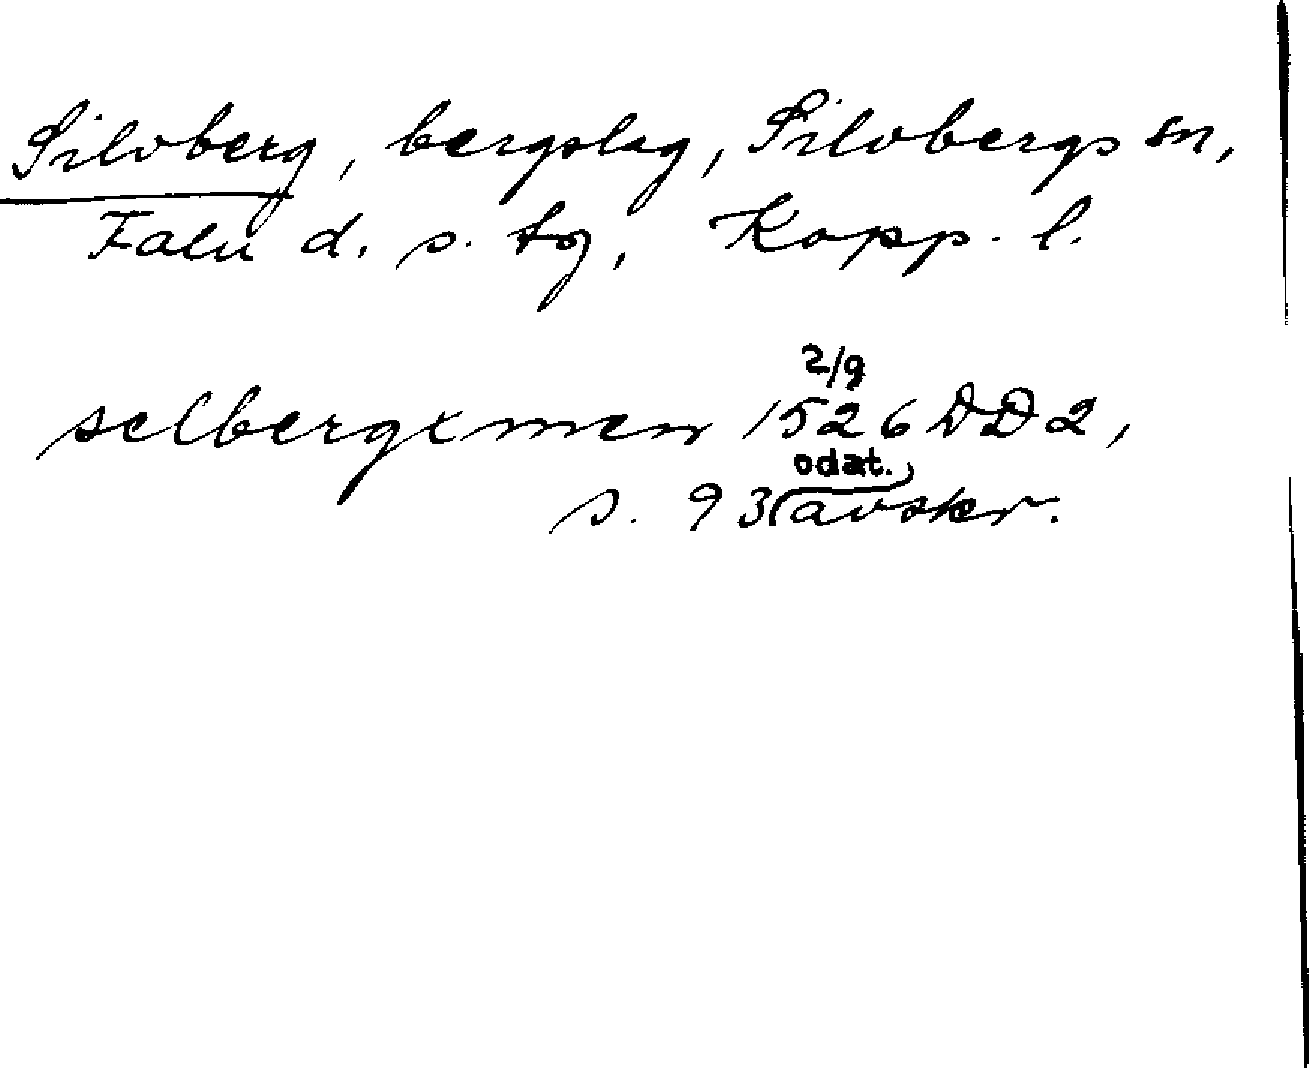 Silvberg, bergslag, Silvbergs sn,
Falu d. s. tg, Kopp. l.
2/9
selbergxmen 1526 DD2,
odat.
s. 93 (avskr.